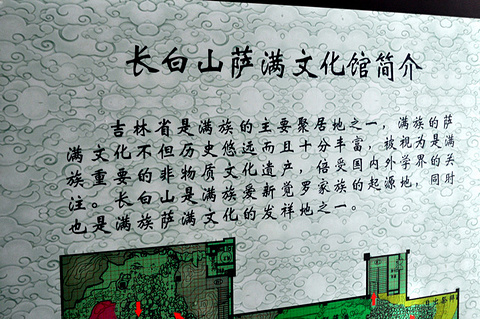 长白山萨满文化馆简介
吉林省是满族的主要聚居地之一，满族的萨
满文化不但历史悠远而且十分丰富，被视为是满
族重要的非物质文化遗产，倍受国内外学界的关
注。长白山是满族爱新觉罗家族的起源地，同时
也是满族萨满文化的发祥地之一。